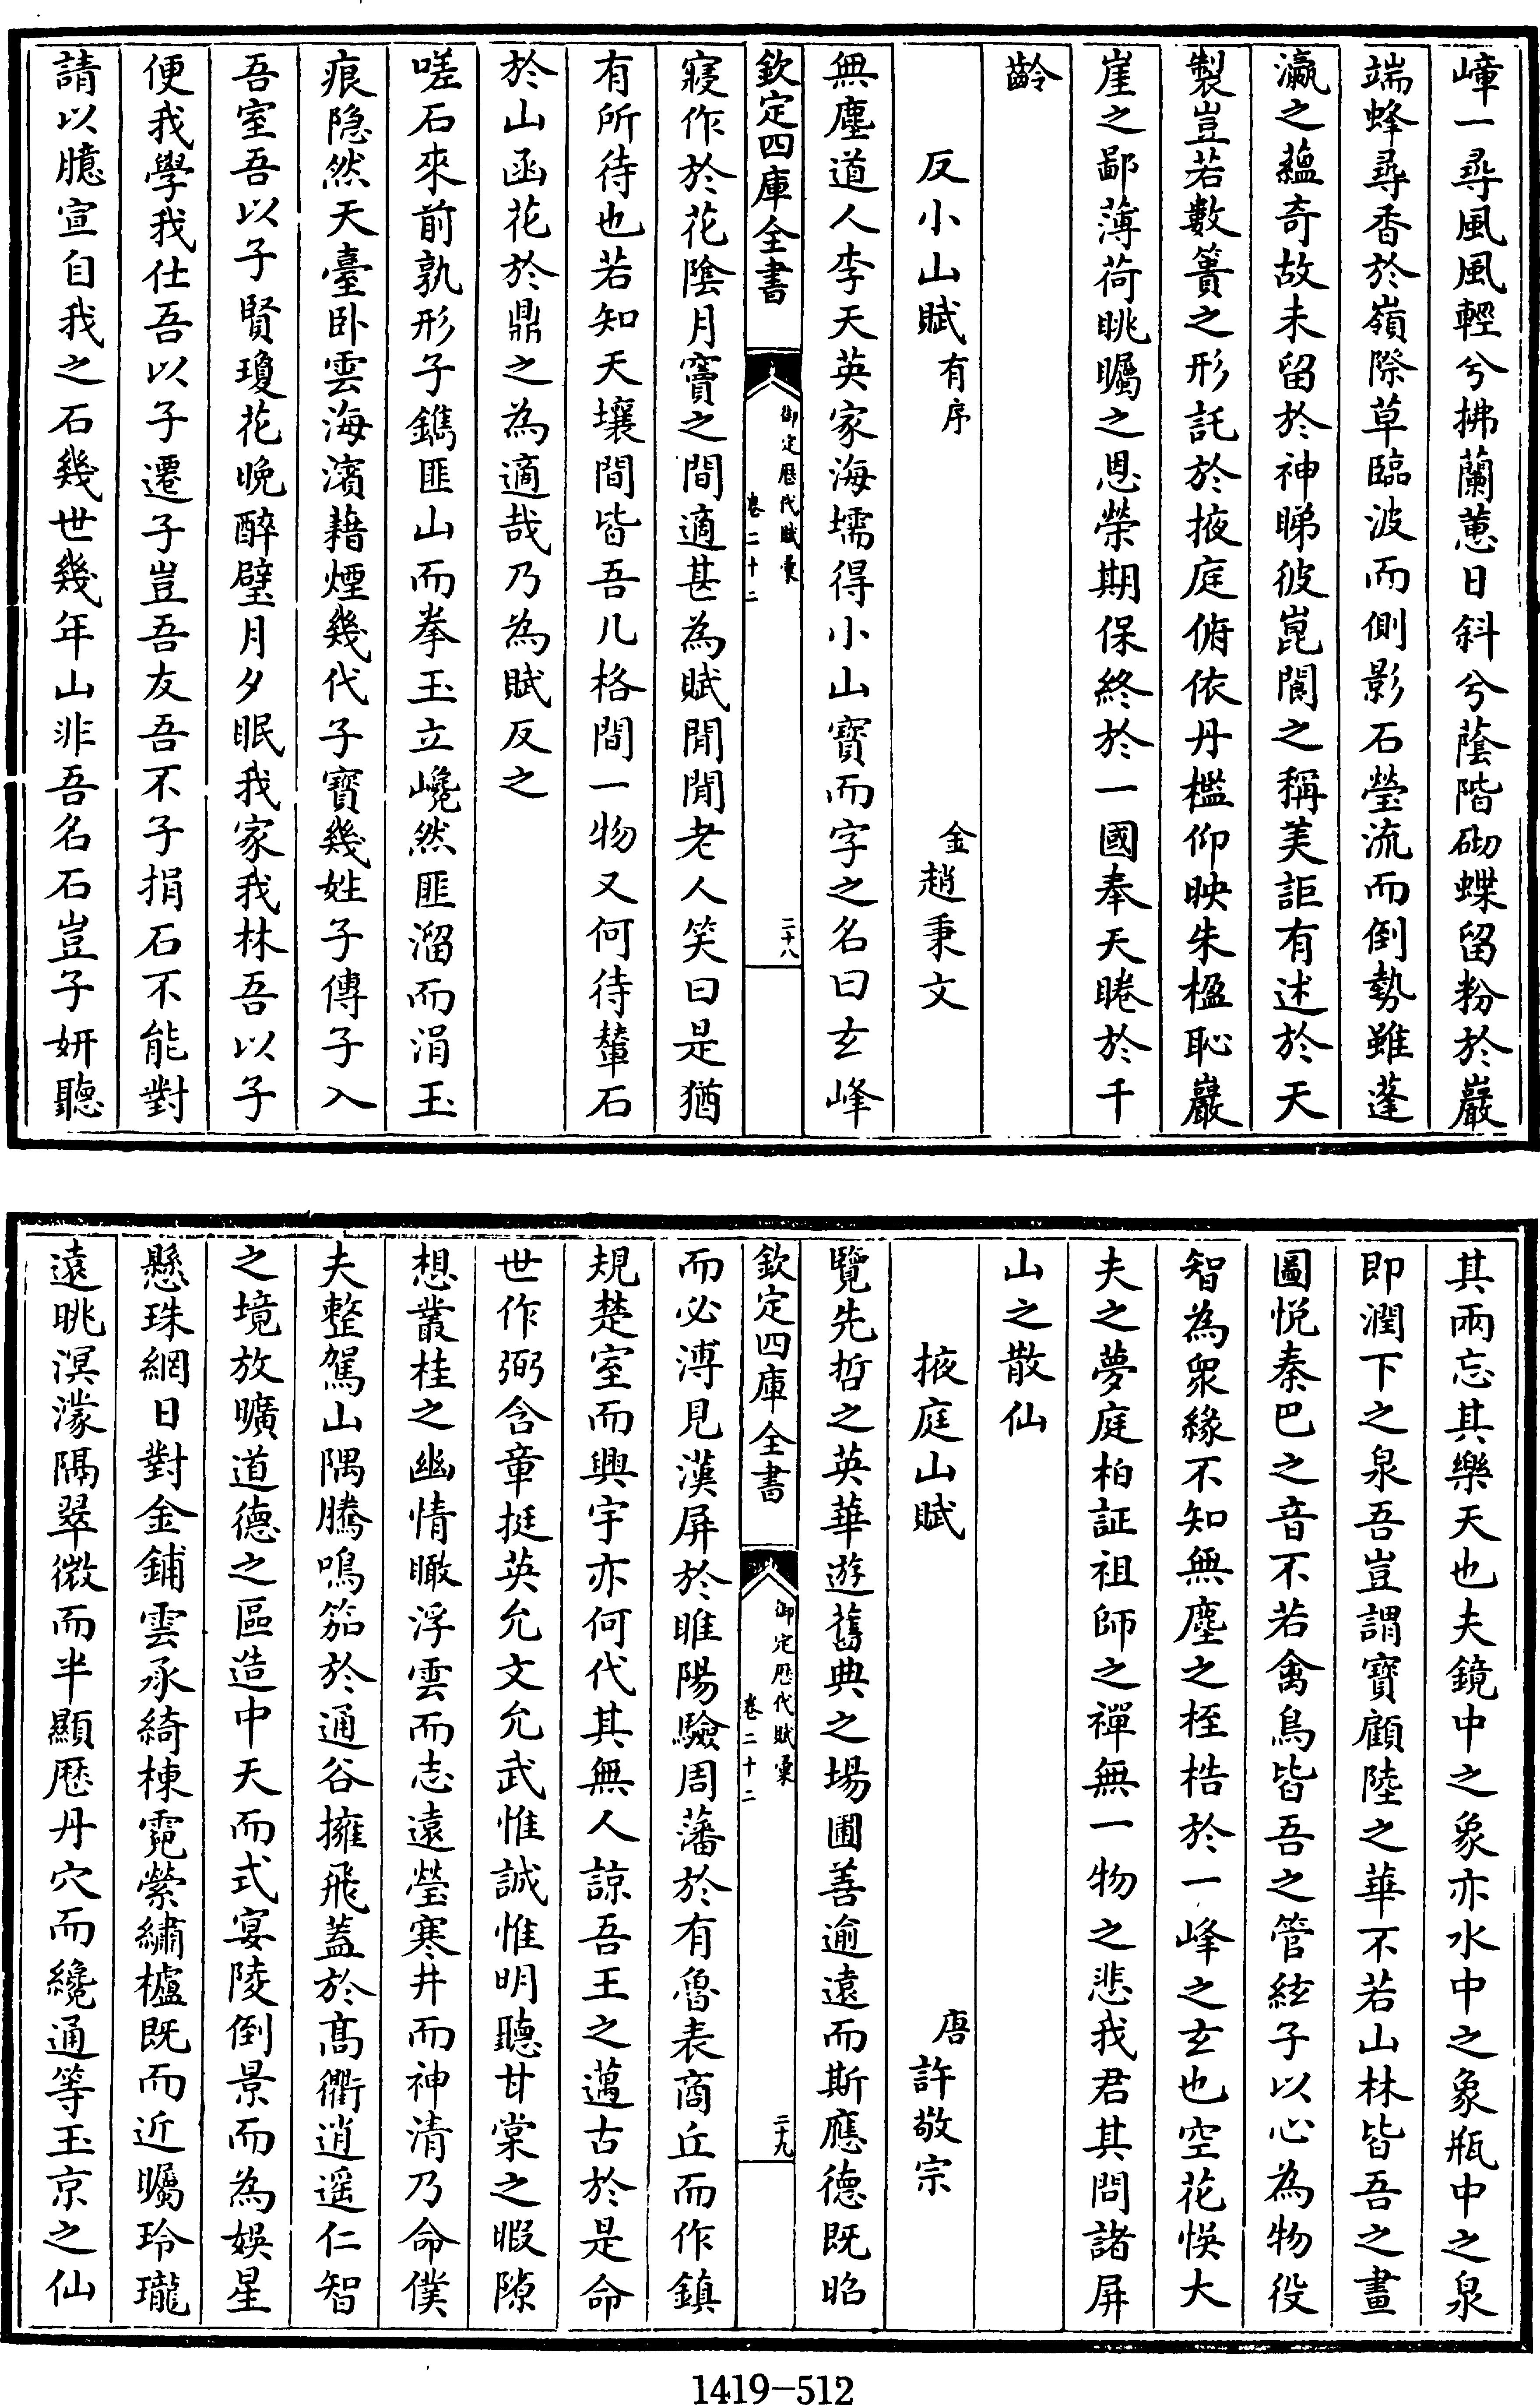 嶂一尋風風輕兮拂蘭蕙日斜兮蔭階砌蝶留粉於巖
端蜂尋香於嶺際草臨波而側影石瑩流而倒勢雖蓬
瀛之蘊奇故未留於神睇彼崑閬之稱美詎有述於天
製豈若數簣之形託於掖庭俯依丹檻仰映朱楹恥巖
崖之鄙薄荷眺矚之恩榮期保終於一國奉天睠於千
齡
反小山賦有序　金趙秉文
無塵道人李天英家海壖得小山寶而字之名曰玄峰
欽定四庫全書　御定歷代賦彙　卷二十二　二十八
寢作於花陰月竇之間適甚為賦閒閒老人笑曰是猶
有所待也若知天壤間皆吾几格間一物又何待輦石
於山函花於鼎之為適哉乃為賦反之
嗟石來前孰形子鐫匪山而拳玉立巉然匪溜而涓玉
痕隐然天臺卧雲海濱藉煙幾代子寶幾姓子傳子入
吾室吾以子賢瓊花晚醉璧月夕眠我家我林吾以子
便我學我仕吾以子遷子豈吾友吾不子捐石不能對
請以臆宣自我之石幾世幾年山非吾名石豈子妍聽
其兩忘其樂天也夫鏡中之象亦水中之象瓶中之泉
即潤下之泉吾豈謂寶顧陸之華不若山林皆吾之畫
圖悅秦巴之音不若禽鳥皆吾之管絃子以心為物役
智為衆緣不知無塵之桎梏於一峰之玄也空花悞大
夫之夢庭柏証祖師之禪無一物之悲我君其問諸屏
山之散仙
掖庭山賦　唐許敬宗
覽先哲之英華遊舊典之場圃善逾遠而斯應德既昭
欽定四庫全書　御定歷代賦彙　卷二十二　二十九
而必溥見漢屏於睢陽驗周藩於有魯表商丘而作鎮
規楚室而興宇亦何代其無人諒吾王之邁古於是命
世作弼含章挺英允文允武惟誠惟明聽甘棠之暇隙
想叢桂之幽情瞰浮雲而志遠瑩寒井而神清乃命僕
夫整駕山隅騰鳴笳於通谷擁飛蓋於高衢逍遥仁智
之境放曠道德之區造中天而式宴陵倒景而為娛星
懸珠網日對金鋪雲承綺棟霓縈繡櫨既而近矚玲瓏
遠眺溟濛隔翠微而半顯歷丹穴而纔通等玉京之仙
1419-512